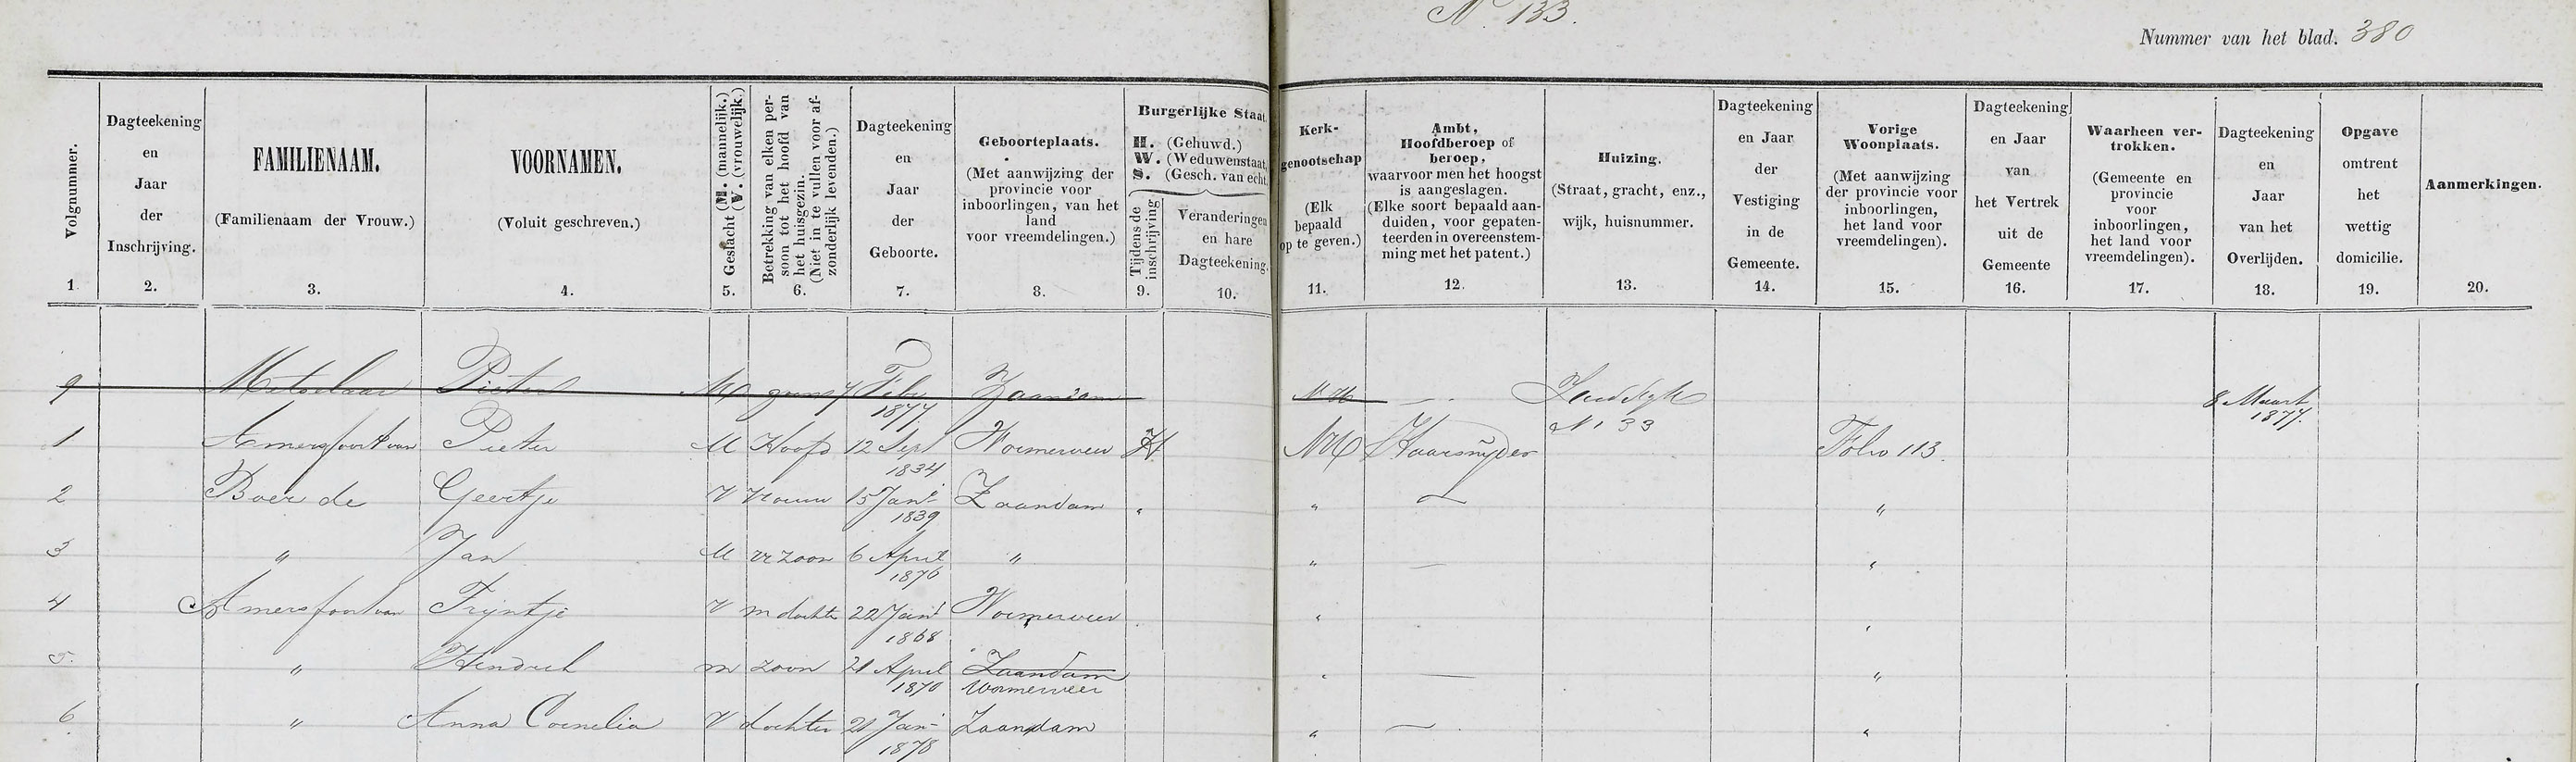 N. 133.
Nummer van het blad. 380
Volgnummer.
1.
Dagteekening
en
Jaar
der
Inschrijving.
2.
FAMILIENAAM.
(Familienaam der Vrouw.)
3.
VOORNAMEN.
(Voluit geschreven.)
4.
Geslacht (M. (mannelijk.) (V. (vrouwelijk.)
5.
Betrekking van elken per-
soon tot het hoofd van
het huisgezin.
(Niet in te vullen voor af-
zonderlijk levenden.)
6.
Dagteekening
en
Jaar
der
Geboorte.
7.
Geboorteplaats.
(Met aanwijzing der
provincie voor
inboorlingen, van het
land
voor vreemdelingen.)
8.
Burgerlijke Staat.
H. (Gehuwd.)
W. (Weduwenstaat.
S. (Gesch. van echt.
Tijdens de
inschrijving
9.
Veranderingen
en hare
Dagteekening.
10.
Kerk-
genootschap
(Elk
bepaald
op te geven.)
11.
Ambt,
Hoofdberoep of
beroep,
waarvoor men het hoogst
is aangeslagen.
(Elke soort bepaald aan-
duiden, voor gepaten-
teerden in overeenstem-
ming met het patent.)
12.
Huizing.
(Straat, gracht, enz.,
wijk, huisnummer.
13.
Dagteekening
en Jaar
der
Vestiging
in de
Gemeente.
14.
Vorige
Woonplaats.
(Met aanwijzing
der provincie voor
inboorlingen,
het land voor
vreemdelingen).
15.
Dagteekening
en Jaar
van
het Vertrek
uit de
Gemeente
16.
Waarheen ver-
trokken.
(Gemeente en
provincie
voor
inboorlingen,
het land voor
vreemdelingen).
17.
Dagteekening
en
Jaar
van het
Overlijden.
18.
Opgave
omtrent
het
wettig
domicilie.
19.
Aanmerkingen.
20.
9 Metselaar Pieter M 7 Febr 1877 Zaandam NH — 8 Maart 1877.
1 Amersfoort van Pieter M Hoofd 12 Sept 1834 Wormerveer H NH N. 33 Folio 113.
2 Boer de Geertje V Vrouw 15 Jani 1839 Zaandam " " — "
3 " Jan M vr zoon 6 April 1876 " " — "
4 Amersfoort van Trijntje V m dochter 22 Jani 1868 Wormerveer " "
5. " Hendrik m zoon 21 April 1870 Zaandam Wormerveer " — "
6 " Anna Cornelia V dochter 21 Jani 1878 Zaandam " — "